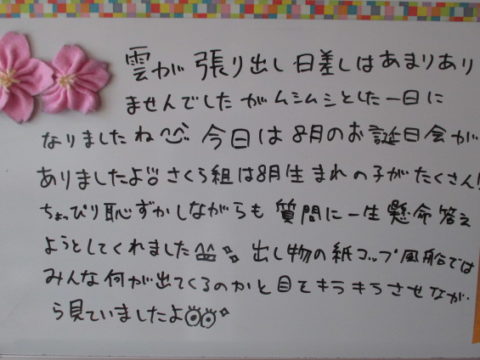 雲が張り出し日差しはあまりあり
ませんでしたがムシムシとした一日に
なりましたね 今日は8月のお誕日会が
ありましたよ!! さくら組は8月生まれの子がたくさん!
ちょっぴり恥ずかしながらも質問に一生懸命答え
ようとしてくれました 出し物の紙コップ風船では
みんな何が出てくるのかと目をキラキラさせなが
ら見ていましたよ